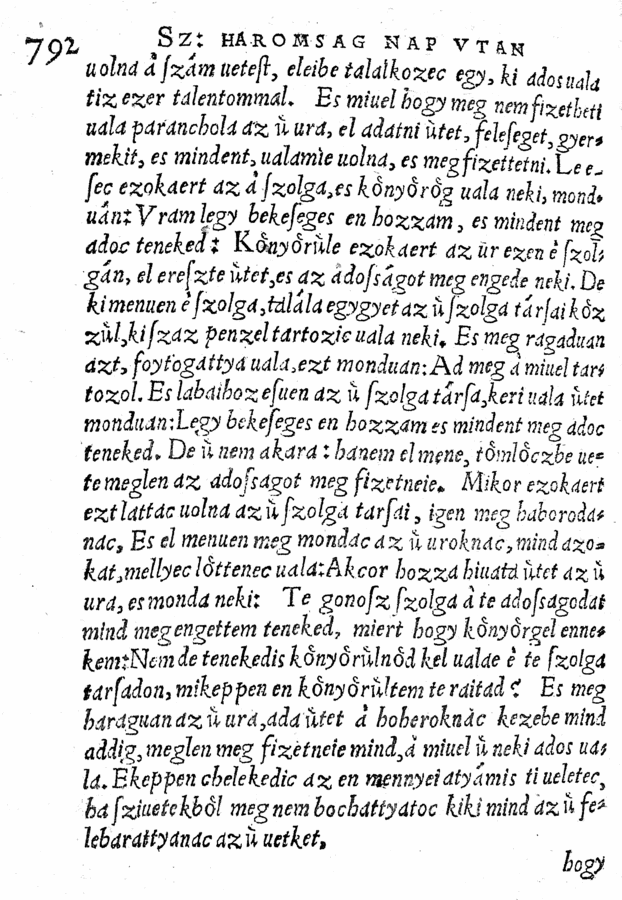 792 Sz: HAROMSAG NAP VTAN
uolna à ſzám uetest, eleibe talalkozec egy, ki ados uala
tiz ezer talentommal. Es miuel hogy meg nem fizetheti
uala paranchola az ù ura, el adatni ùtet, feleſeget, gyer-
mekit, es mindent, ualamie uolna, es meg fizettetni. Le e-
ſec ezokaert az à ſzolga, es ko̊nyo̊ro̊g uala neki, mond-
uán: Vram legy bekeſeges en hozzam, es mindent meg
adoc teneked: Ko̊nyo̊rùle ezokaert az ùr ezen è ſzol-
gán, el ereſzte ùtet, es az adoſságot meg engede neki. De
ki menuen è ſzolga, talála egygyet az ù ſzolga társai ko̊z
zùl, ki ſzaz penzel tartozic uala neki. Es meg ragaduan
azt, foytogattya uala, ezt monduan: Ad meg à miuel tar-
tozol. Es labaihoz eſuen az ù ſzolga tárſa, keri uala ùtet
monduan: Legy bekeſeges en hozzam es mindent meg adoc
teneked. De ù nem akara: hanem el mene, to̊mlo̊czbe ue-
te meglen az adoſsagot meg fizetneie. Mikor ezokaert
ezt lattac uolna az ù ſzolga tarſai, igen meg haboroda-
nac, Es el menuen meg mondac az ù uroknac, mind azo-
kat, mellyec lo̊ttenec uala: Akcor hozza hiuata ùtet az ù
ura, es monda neki: Te gonoſz ſzolga à te adoſsagodat
mind meg engettem teneked, miert hogy ko̊nyo̊rgel enne-
kem: Nem de tenekedis ko̊nyo̊rùlno̊d kel ualae è te ſzolga
tarſadon, mikeppen en ko̊nyo̊rùltem te raitad? Es meg
haraguan az ù ura, ada ùtet à hoheroknàc kezebe mind
addig, meglen meg fizetneie mind, à miuel ù neki ados ua-
la. Ekeppen chelekedic az en mennyei atyámis ti ueletec,
ha ſziuetekbo̊l meg nem bochattyatoc kiki mind az ù fe-
lebarattyanac az ù uetket.
hogy